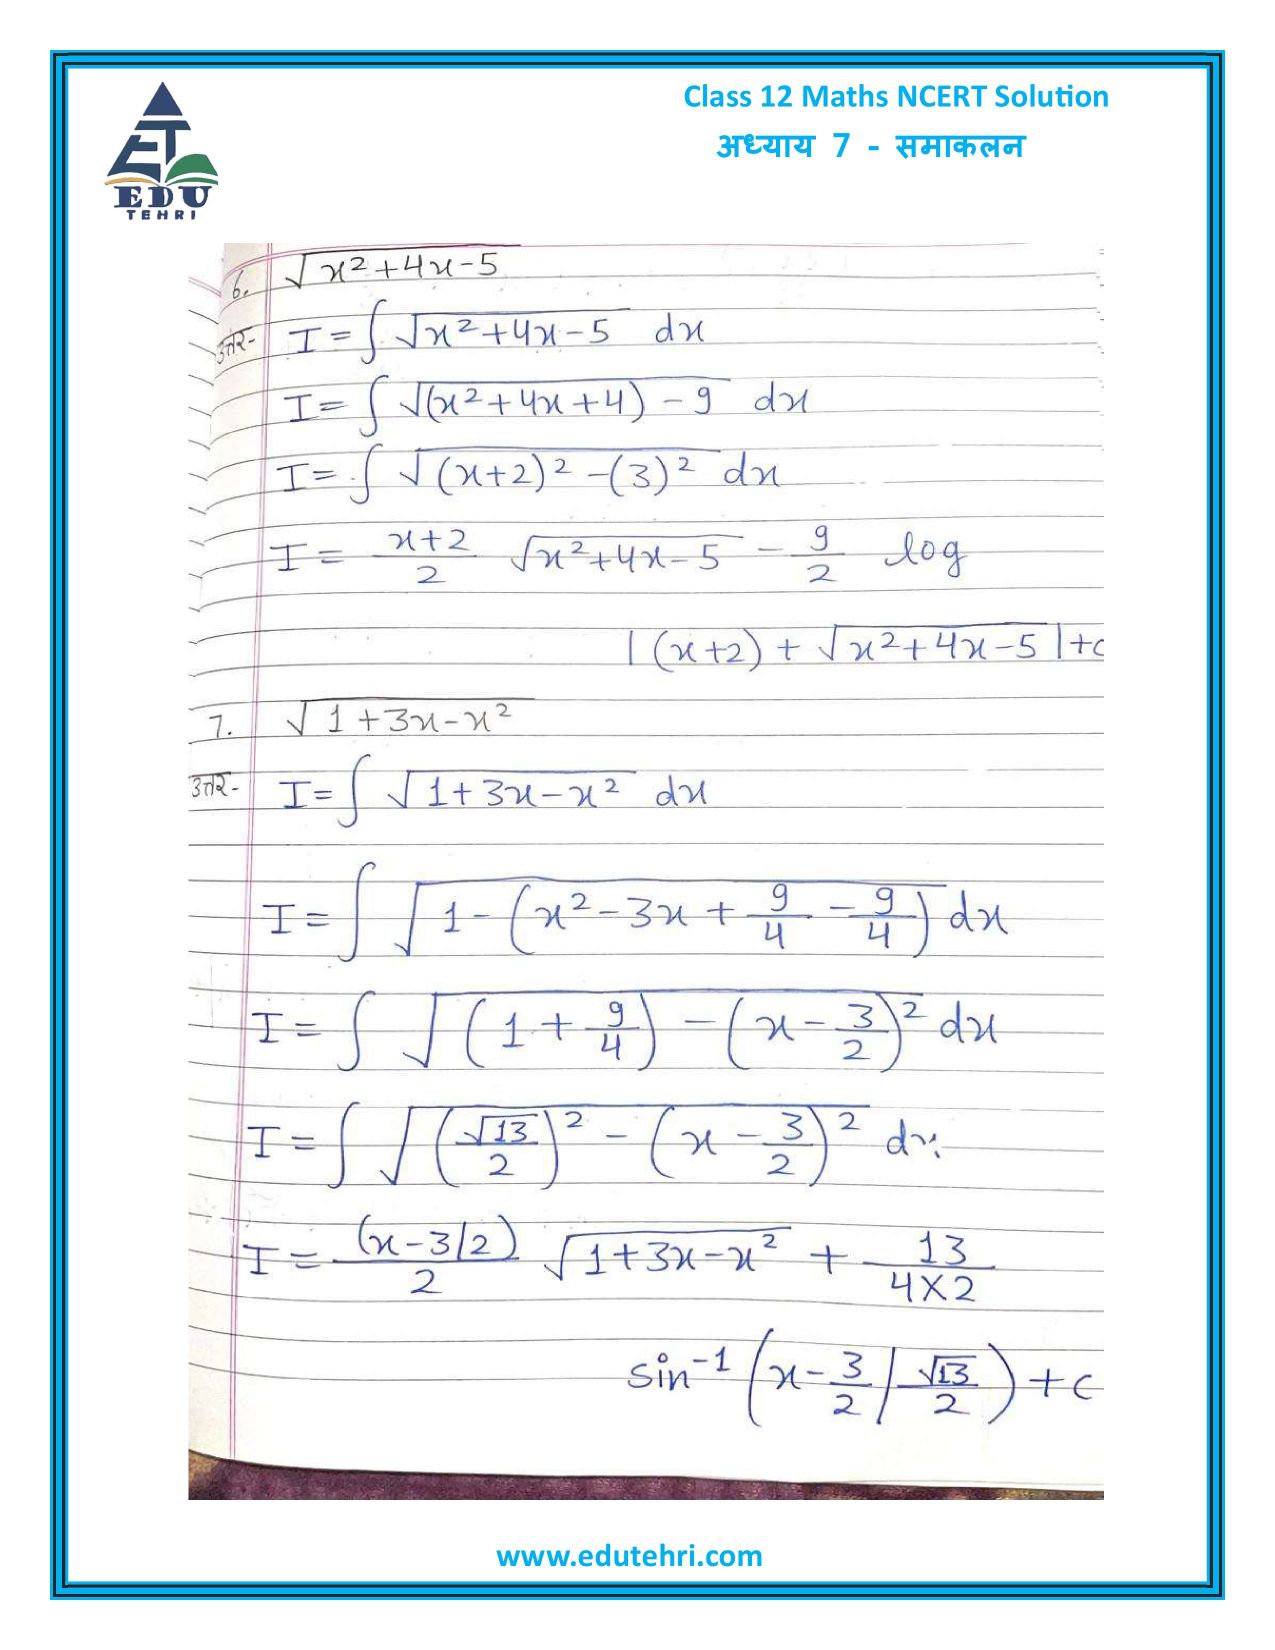 EDU
TEHRI
Class 12 Maths NCERT Solution
अध्याय 7 - समाकलन
6. √x²+4x-5
उत्तर- I = ∫ √x²+4x-5 dx
I = ∫ √(x²+4x+4) - 9 dx
I = ∫ √(x+2)² - (3)² dx
I = x+2/2 √x²+4x-5 - 9/2 log
|(x+2) + √x²+4x-5|+c
7. √1+3x-x²
उत्तर- I = ∫ √1+3x-x² dx
I = ∫ √1-(x²-3x+9/4-9/4) dx
I = ∫ √(1+9/4) - (x-3/2)² dx
I = ∫ √(√13/2)² - (x-3/2)² dx
I = (x-3/2)/2 √1+3x-x² + 13/4×2
sin⁻¹(x-3/2/√13/2)+c
www.edutehri.com